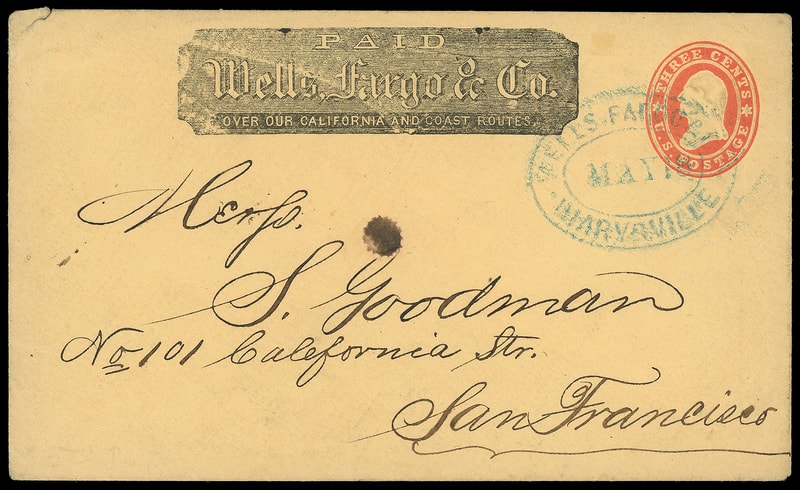 PAID
Wells, Fargo & Co.
OVER OUR CALIFORNIA AND COAST ROUTES.
THREE CENTS
U.S. POSTAGE
WELLS, FARGO
MAY
MARYSVILLE
Messs.
S. Goodman
No 101 California Str.
San Francisco